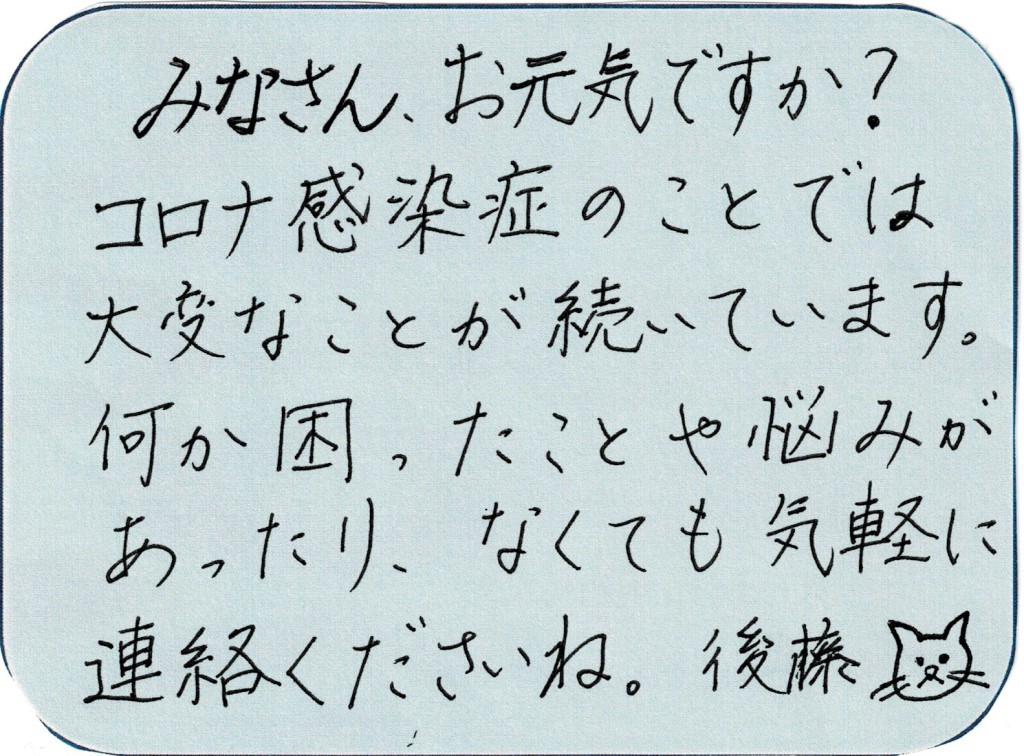 みなさん、お元気ですか？
コロナ感染症のことでは
大変なことが続いています。
何か困ったことや悩みが
あったり、なくても気軽に
連絡くださいね。後藤